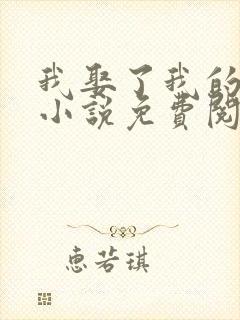 我娶了我的
小说免費閱
惠若琪